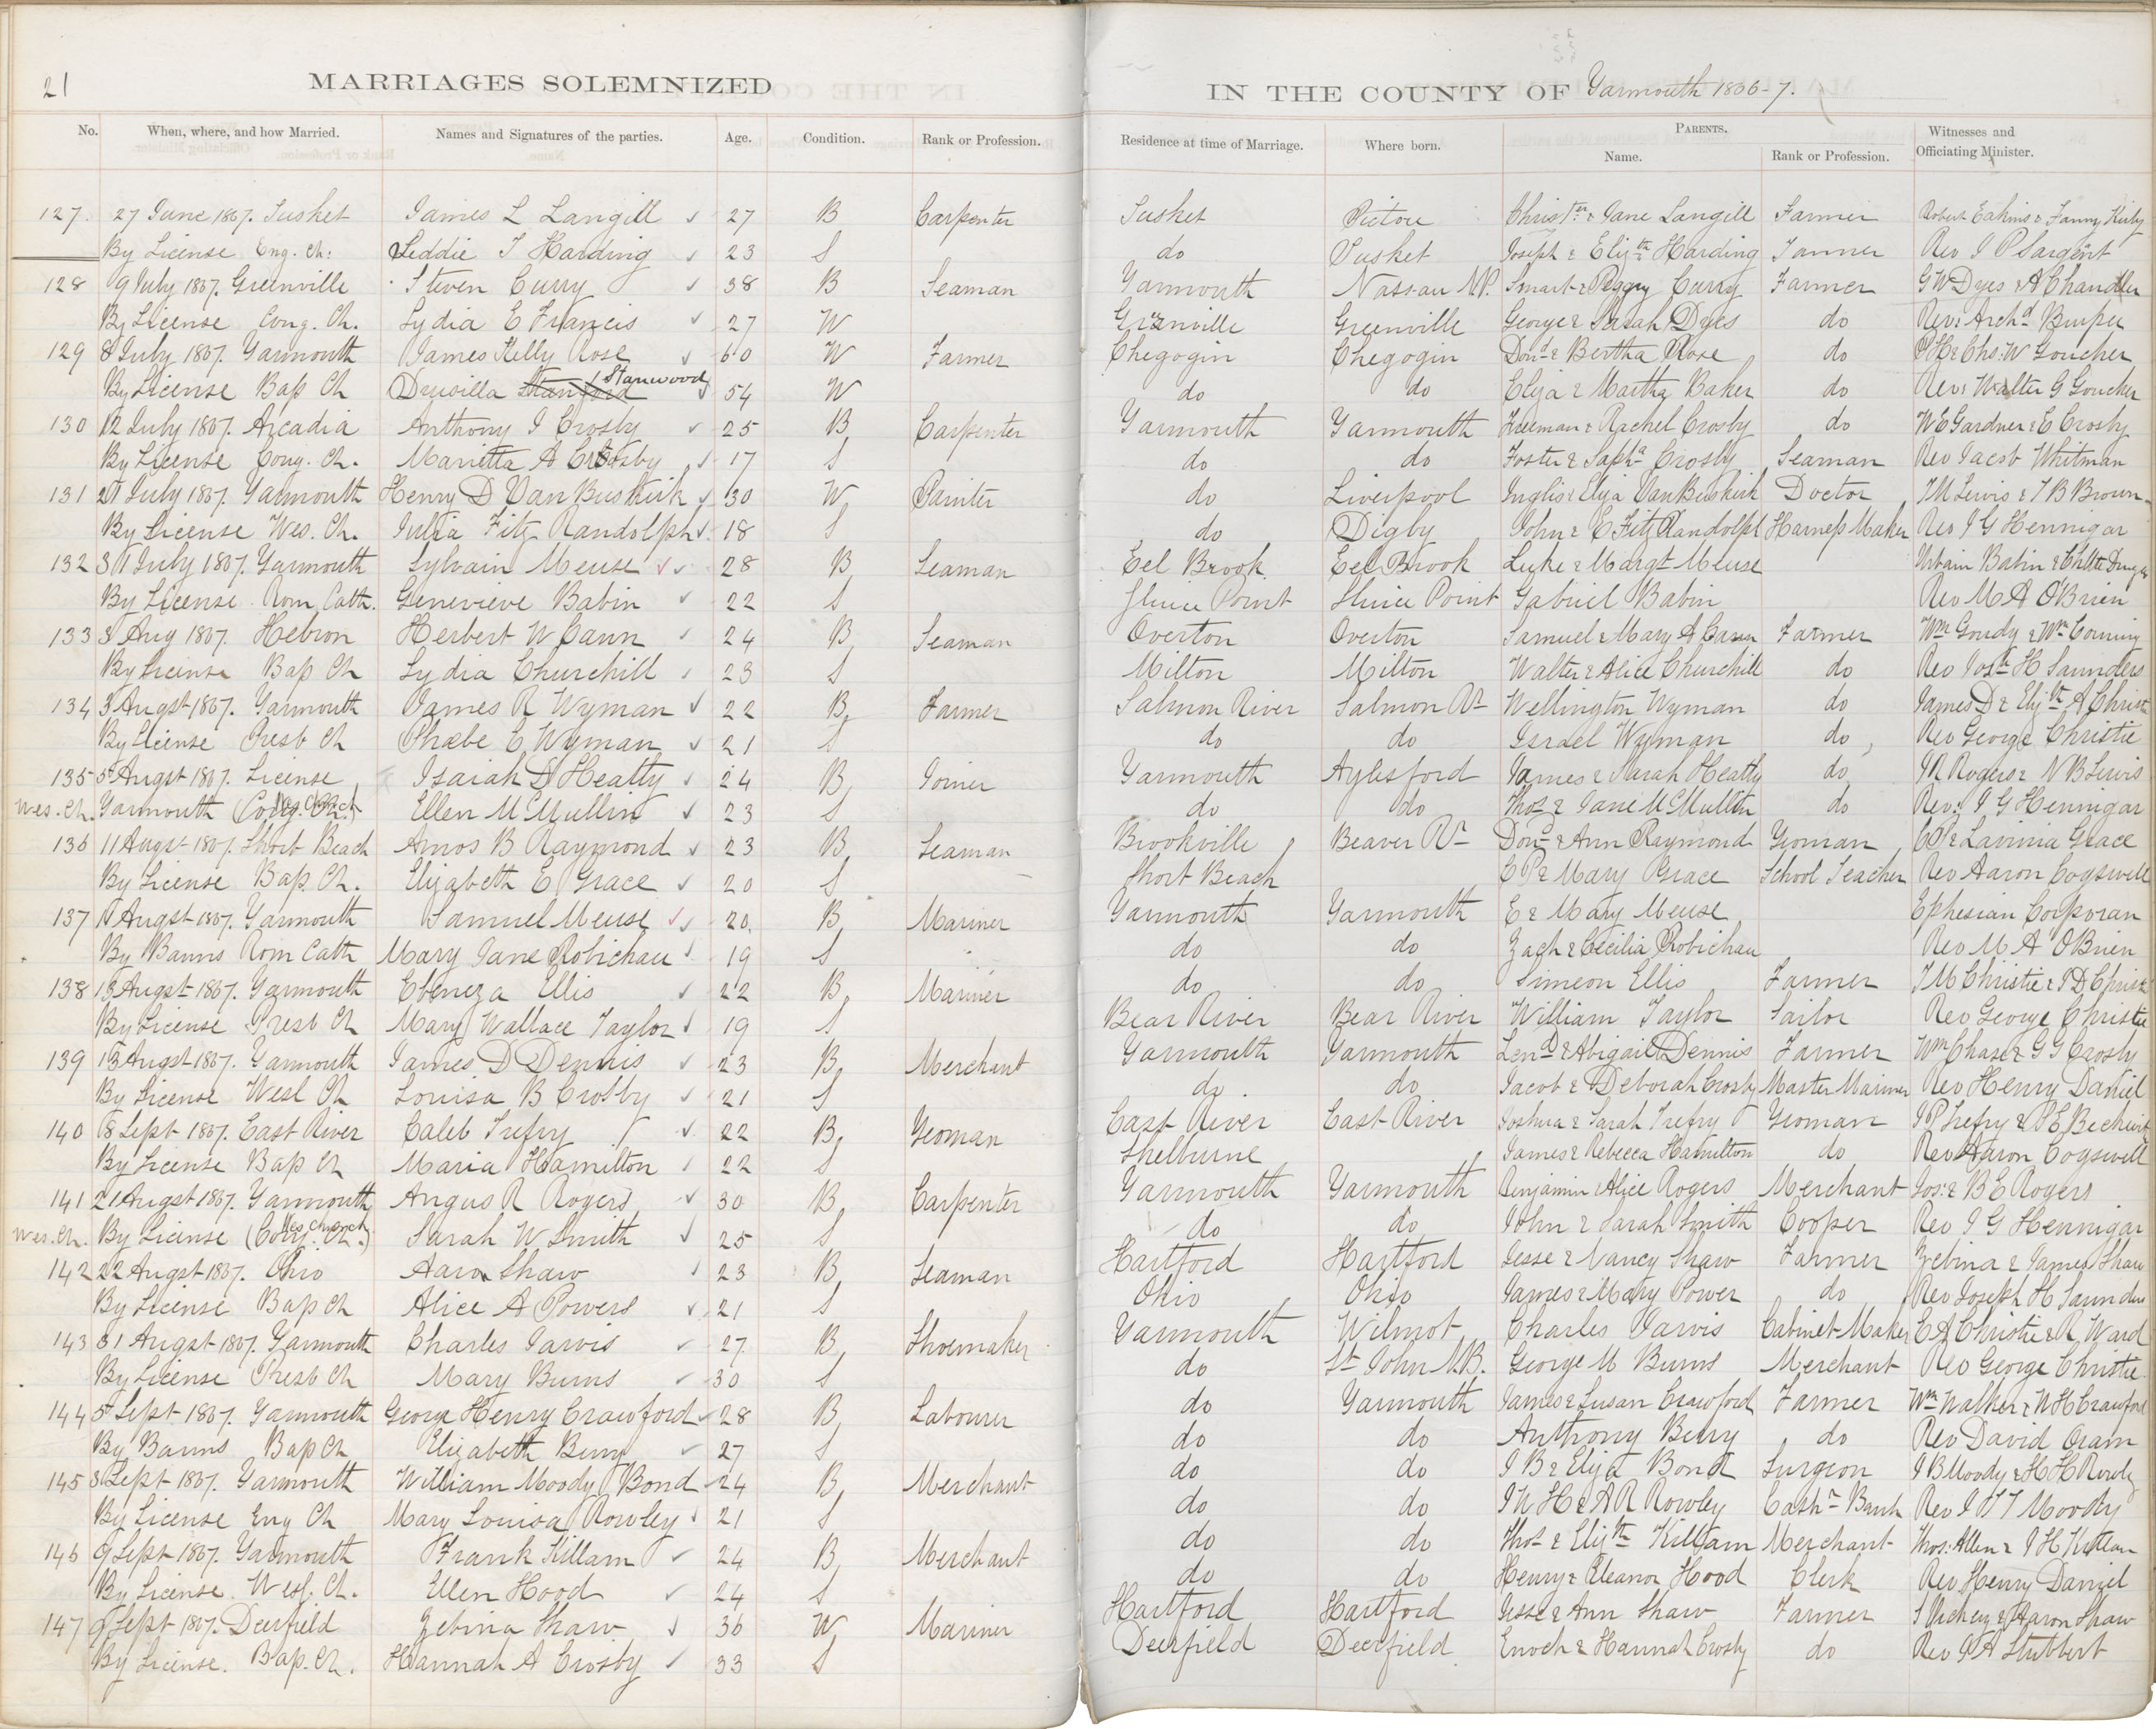 21
MARRIAGES SOLEMNIZED IN THE COUNTY OF Yarmouth 1866-7.
No. When, where, and how Married. Names and Signatures of the parties. Age. Condition. Rank or Profession. Residence at time of Marriage. Where born. PARENTS. Name. Rank or Profession. Witnesses and Officiating Minister.
127. 27 June 1867. Tusket James L Langill 27 B Carpenter Tusket Pictou Christer & Jane Langill Farmer Robert Eakins & Fanny Kirby
By License Eng. Ch: Leddie T Harding 23 S do Tusket Joseph & Elizth Harding Tanner Rev J P Sargent
128 9 July 1867. Greenville Steven Curry 38 B Seaman Yarmouth Nassau N.P. Smart & Peggy Curry Farmer G W Dyes & A Chandler
By License Cong. Ch. Lydia E Francis 27 W Greenville Greenville George & Sarah Dyes do Rev: Archd Burpee
129 8 July 1867. Yarmouth James Kelly Rose 60 W Farmer Chegogin Chegogin Dond & Bertha Rose do & Chs: W Goucher
By License Bap Ch Drusilla Stanwood 54 W do do Eliza & Martha Baker do Rev: Walter G Goucher
130 12 July 1867. Arcadia Anthony J Crosby 25 B Carpenter Yarmouth Yarmouth Freeman & Rachel Crosby do W E Gardner & E Crosby
By License Cong. Ch. Marietta A Crosby 17 S do do Foster & Sapha Crosby Seaman Rev Jacob Whitman
131 21 July 1867. Yarmouth Henry D Van Buskirk 30 W Painter do Liverpool Inglis & Eliza Van Buskirk Doctor J M Lewis & T B Brown
By License Wes. Ch. Julia Fitz Randolph 18 S do Digby John & E Fitz Randolph Harness Maker Rev J G Hennigar
132 31 July 1867. Yarmouth Sylvain Meuse 28 B Seaman Eel Brook Eel Brook Luke & Margt Meuse Urbain Babin &
By License Rom Cath. Genevieve Babin 22 S Sluice Point Sluice Point Gabriel Babin Rev M A O'Brien
133 3 Aug 1867. Hebron Herbert W Cann 24 B Seaman Overton Overton Samuel & Mary A Cann Farmer Wm Goudy & Wm Corning
By License Bap Ch Lydia Churchill 23 S Milton Milton Walter & Alice Churchill do Rev Josh H Saunders
134 3 Augst 1867. Yarmouth James R Wyman 22 B Farmer Salmon River Salmon Rr Wellington Wyman do James D & Elizth A Christie
By License Presb Ch Phoebe C Wyman 21 S do do Israel Wyman do Rev George Christie
135 5 Augst 1867. License Isaiah S Heatly 24 B Joiner Yarmouth Aylesford James & Sarah Heatly do J R Rogers & N B Lewis
Wes. Ch. Yarmouth (Cong. Ch.) Ellen McMullin 23 S do do Thos & Jane McMullin do Rev: J G Hennigar
136 11 Augst 1867. Short Beach Amos B Raymond 23 B Seaman Brookville Beaver Rr Dond & Ann Raymond Yeoman C P & Lavinia Grace
By License Bap. Ch. Elizabeth E Grace 20 S Short Beach C P & Mary Grace School Teacher Rev Aaron Cogswell
137 11 Augst 1867. Yarmouth Samuel Meuse 20 B Mariner Yarmouth Yarmouth E & Mary Meuse Ephesian Corporan
By Banns Rom Cath Mary Jane Robichau 19 S do do Zach & Cecilia Robichau Rev M A O'Brien
138 13 Augst 1867. Yarmouth Ebeneza Ellis 22 B Mariner do do Simeon Ellis Farmer J M Christie & J D Christie
By License Presb Ch Mary Wallace Taylor 19 S Bear River Bear River William Taylor Sailor Rev George Christie
139 13 Augst 1867. Yarmouth James D Dennis 23 B Merchant Yarmouth Yarmouth Lend & Abigail Dennis Farmer Wm Chase & G G Crosby
By License Wesl Ch Louisa B Crosby 21 S do do Jacob & Deborah Crosby Master Mariner Rev Henry Daniel
140 18 Sept 1867. East River Caleb Trefry 22 B Yeoman East River East River Joshua & Sarah Trefry Yeoman J P Trefry &
By License Bap Ch Maria Hamilton 22 S Shelburne James & Rebecca Hamilton do Rev Aaron Cogswell
141 21 Augst 1867. Yarmouth Angus R Rogers 30 B Carpenter Yarmouth Yarmouth Benjamin & Alice Rogers Merchant Jos: & B E Rogers
Wes. Ch. By License (Cong. Ch.) Wes Church Sarah W Smith 25 S do do John & Sarah Smith Cooper Rev J G Hennigar
142 22 Augst 1867. Ohio Aaron Shaw 23 B Seaman Hartford Hartford Jesse & Nancy Shaw Farmer Zebina & James Shaw
By License Bap Ch Alice A Powers 21 S Ohio Ohio James & Mary Power do Rev Joseph H Saunders
143 31 Augst 1867. Yarmouth Charles Jarvis 27 B Shoemaker Yarmouth Wilmot Charles Jarvis Cabinet Maker E A Christie & R Ward
By License Presb Ch Mary Burns 30 S do St John N.B. George M Burns Merchant Rev George Christie
144 5 Sept 1867. Yarmouth George Henry Crawford 28 B Labourer do Yarmouth James & Susan Crawford Farmer Wm Walker & W H Crawford
By Banns Bap Ch Elizabeth Berry 27 S do do Anthony Berry do Rev David Oram
145 3 Sept 1867. Yarmouth William Moody Bond 24 B Merchant do do J B & Eliza Bond Surgeon J B Moody & H H Rowley
By License Eng Ch Mary Louisa Rowley 21 S do do J W H & A R Rowley Cashr Bank Rev J T T Moody
146 9 Sept 1867. Yarmouth Frank Killam 24 B Merchant do do Thos & Elizth Killam Merchant Thos: Allen & J H Killam
By License. Wesl. Ch. Ellen Hood 24 S do do Henry & Eleanor Hood Clerk Rev Henry Daniel
147 9 Sept 1867. Deerfield Zebina Shaw 36 W Mariner Hartford Hartford Jesse & Ann Shaw Farmer S Vickery & Aaron Shaw
By License. Bap. Ch. Hannah A Crosby 33 S Deerfield Deerfield Enoch & Hannah Crosby do Rev J A Stubbert